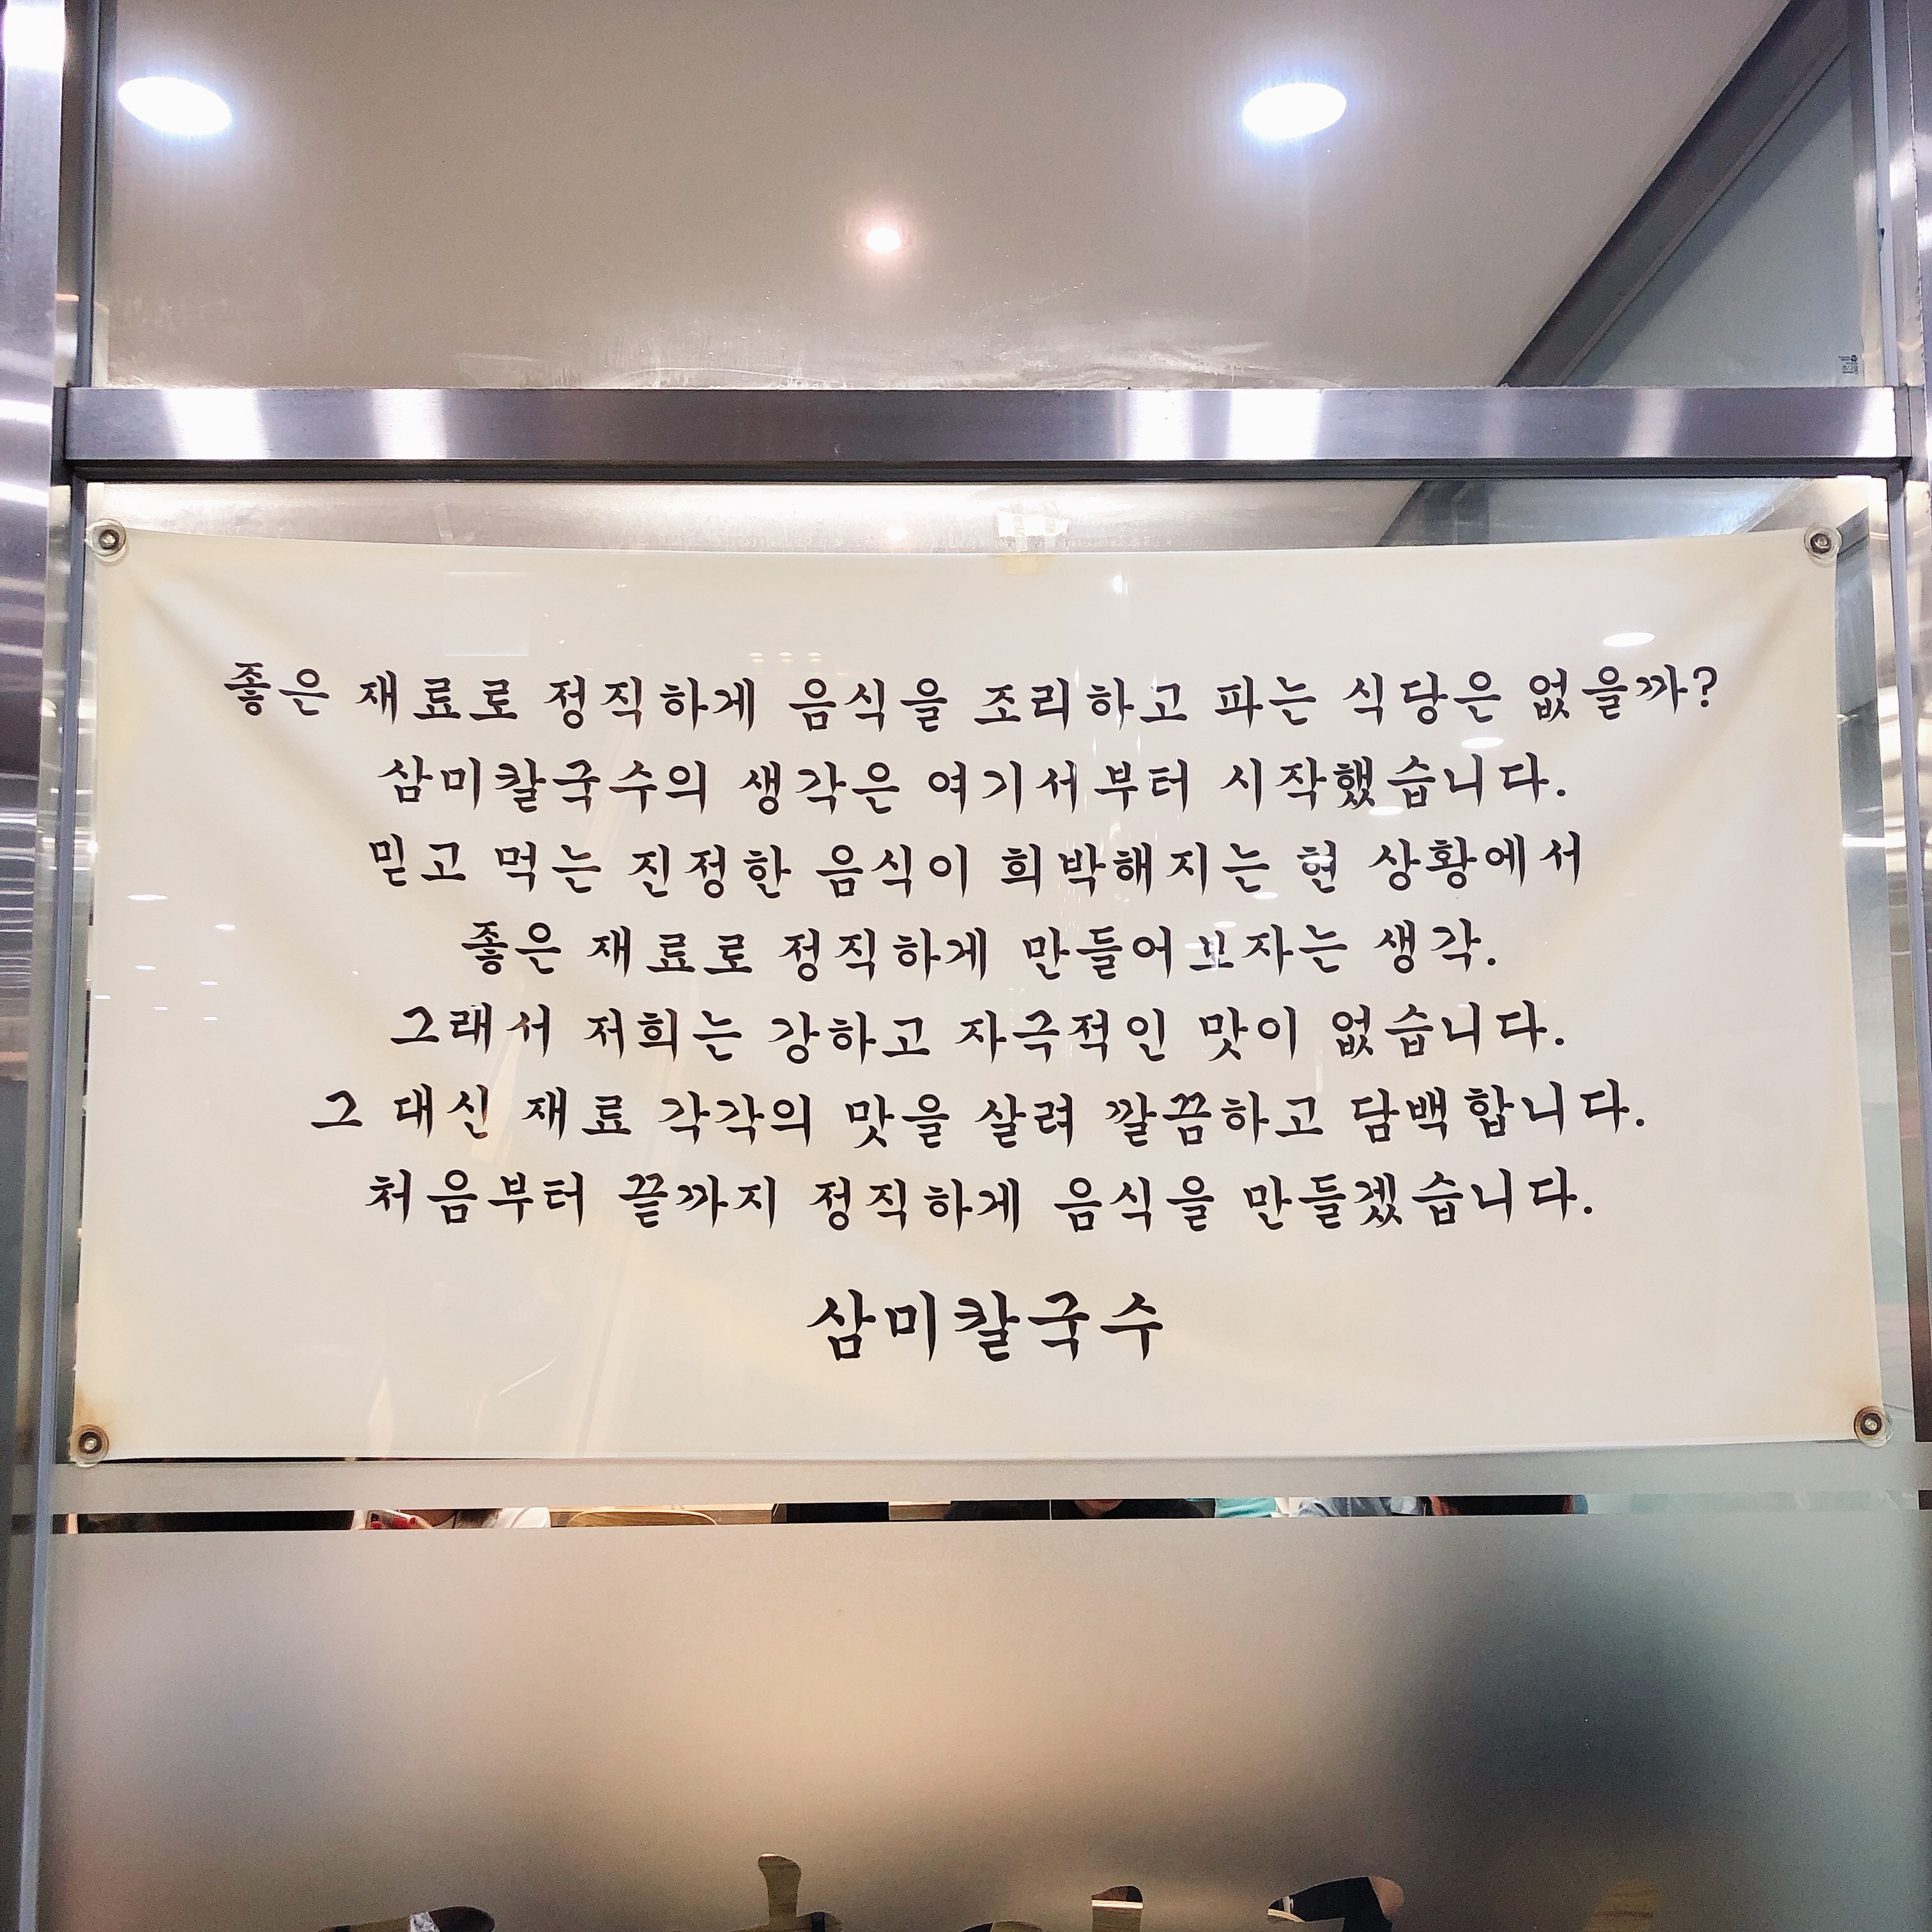 좋은 재료로 정직하게 음식을 조리하고 파는 식당은 없을까?
삼미칼국수의 생각은 여기서부터 시작했습니다.
믿고 먹는 진정한 음식이 희박해지는 현 상황에서
좋은 재료로 정직하게 만들어보자는 생각.
그래서 저희는 강하고 자극적인 맛이 없습니다.
그 대신 재료 각각의 맛을 살려 깔끔하고 담백합니다.
처음부터 끝까지 정직하게 음식을 만들겠습니다.
삼미칼국수